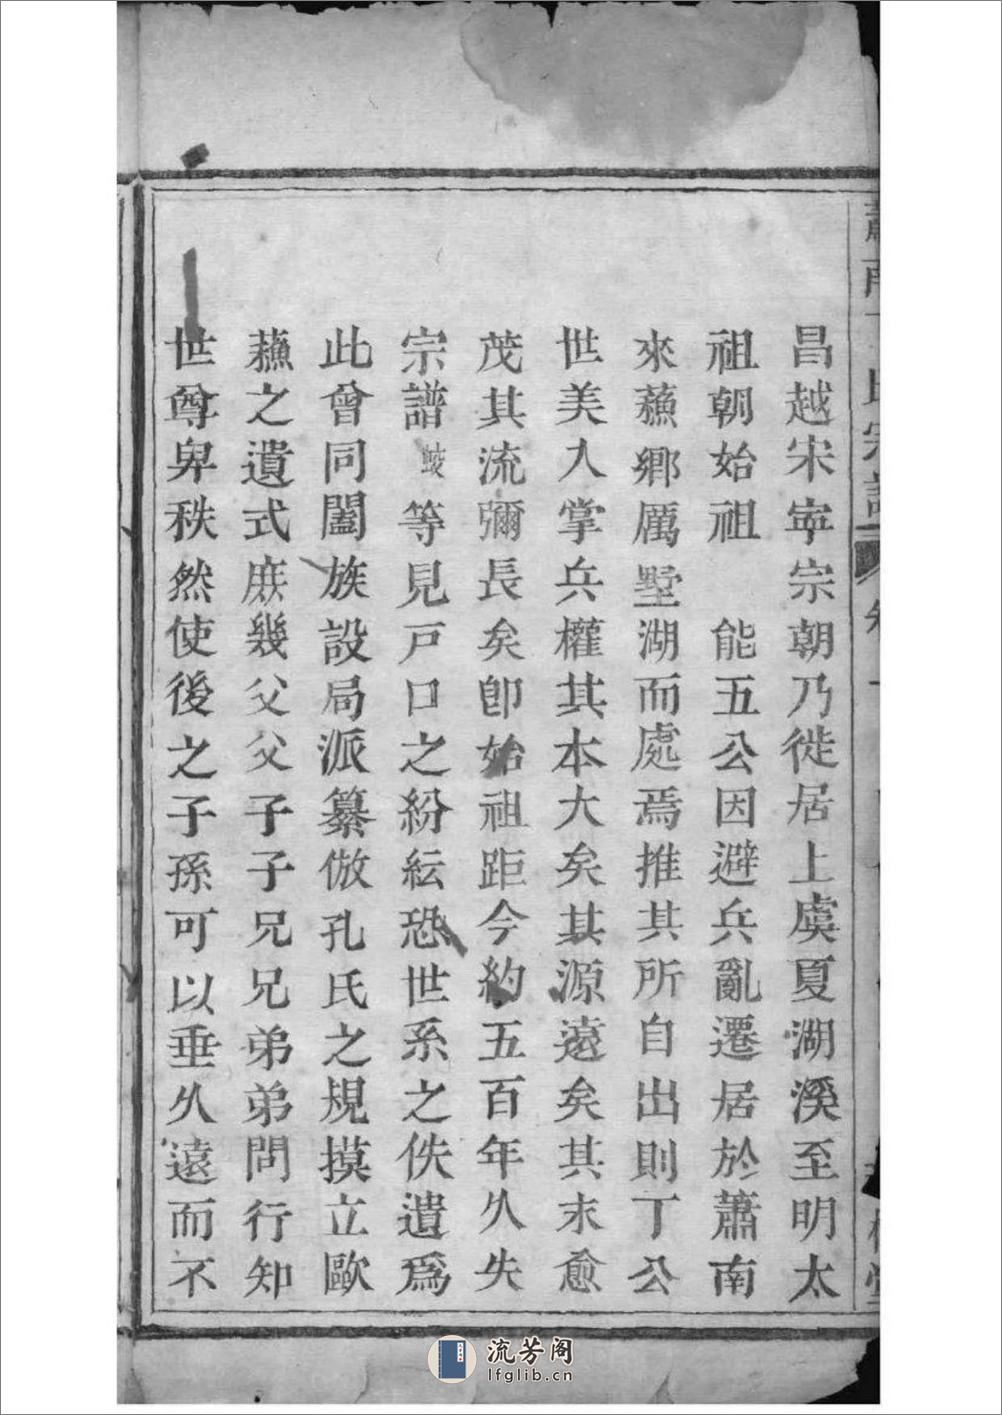 昌越宋寕宗朝乃徙居上虞夏湖溪至明太
祖朝始祖 能五公因避兵亂遷居於蕭南
來蘓鄉厲墅湖而處焉推其所自出則丁公
世美入掌兵權其本大矣其源遠矣其末愈
茂其流彌長矣卽始祖距今約五百年久失
宗譜 等見戸口之紛紜恐世系之佚遺爲
此會同闔族設局派纂倣孔氏之規摸立歐
蘓之遺式庶幾父父子子兄兄弟弟問行知
世尊卑秩然使後之子孫可以垂久遠而不
流芳阁
lfglib.cn